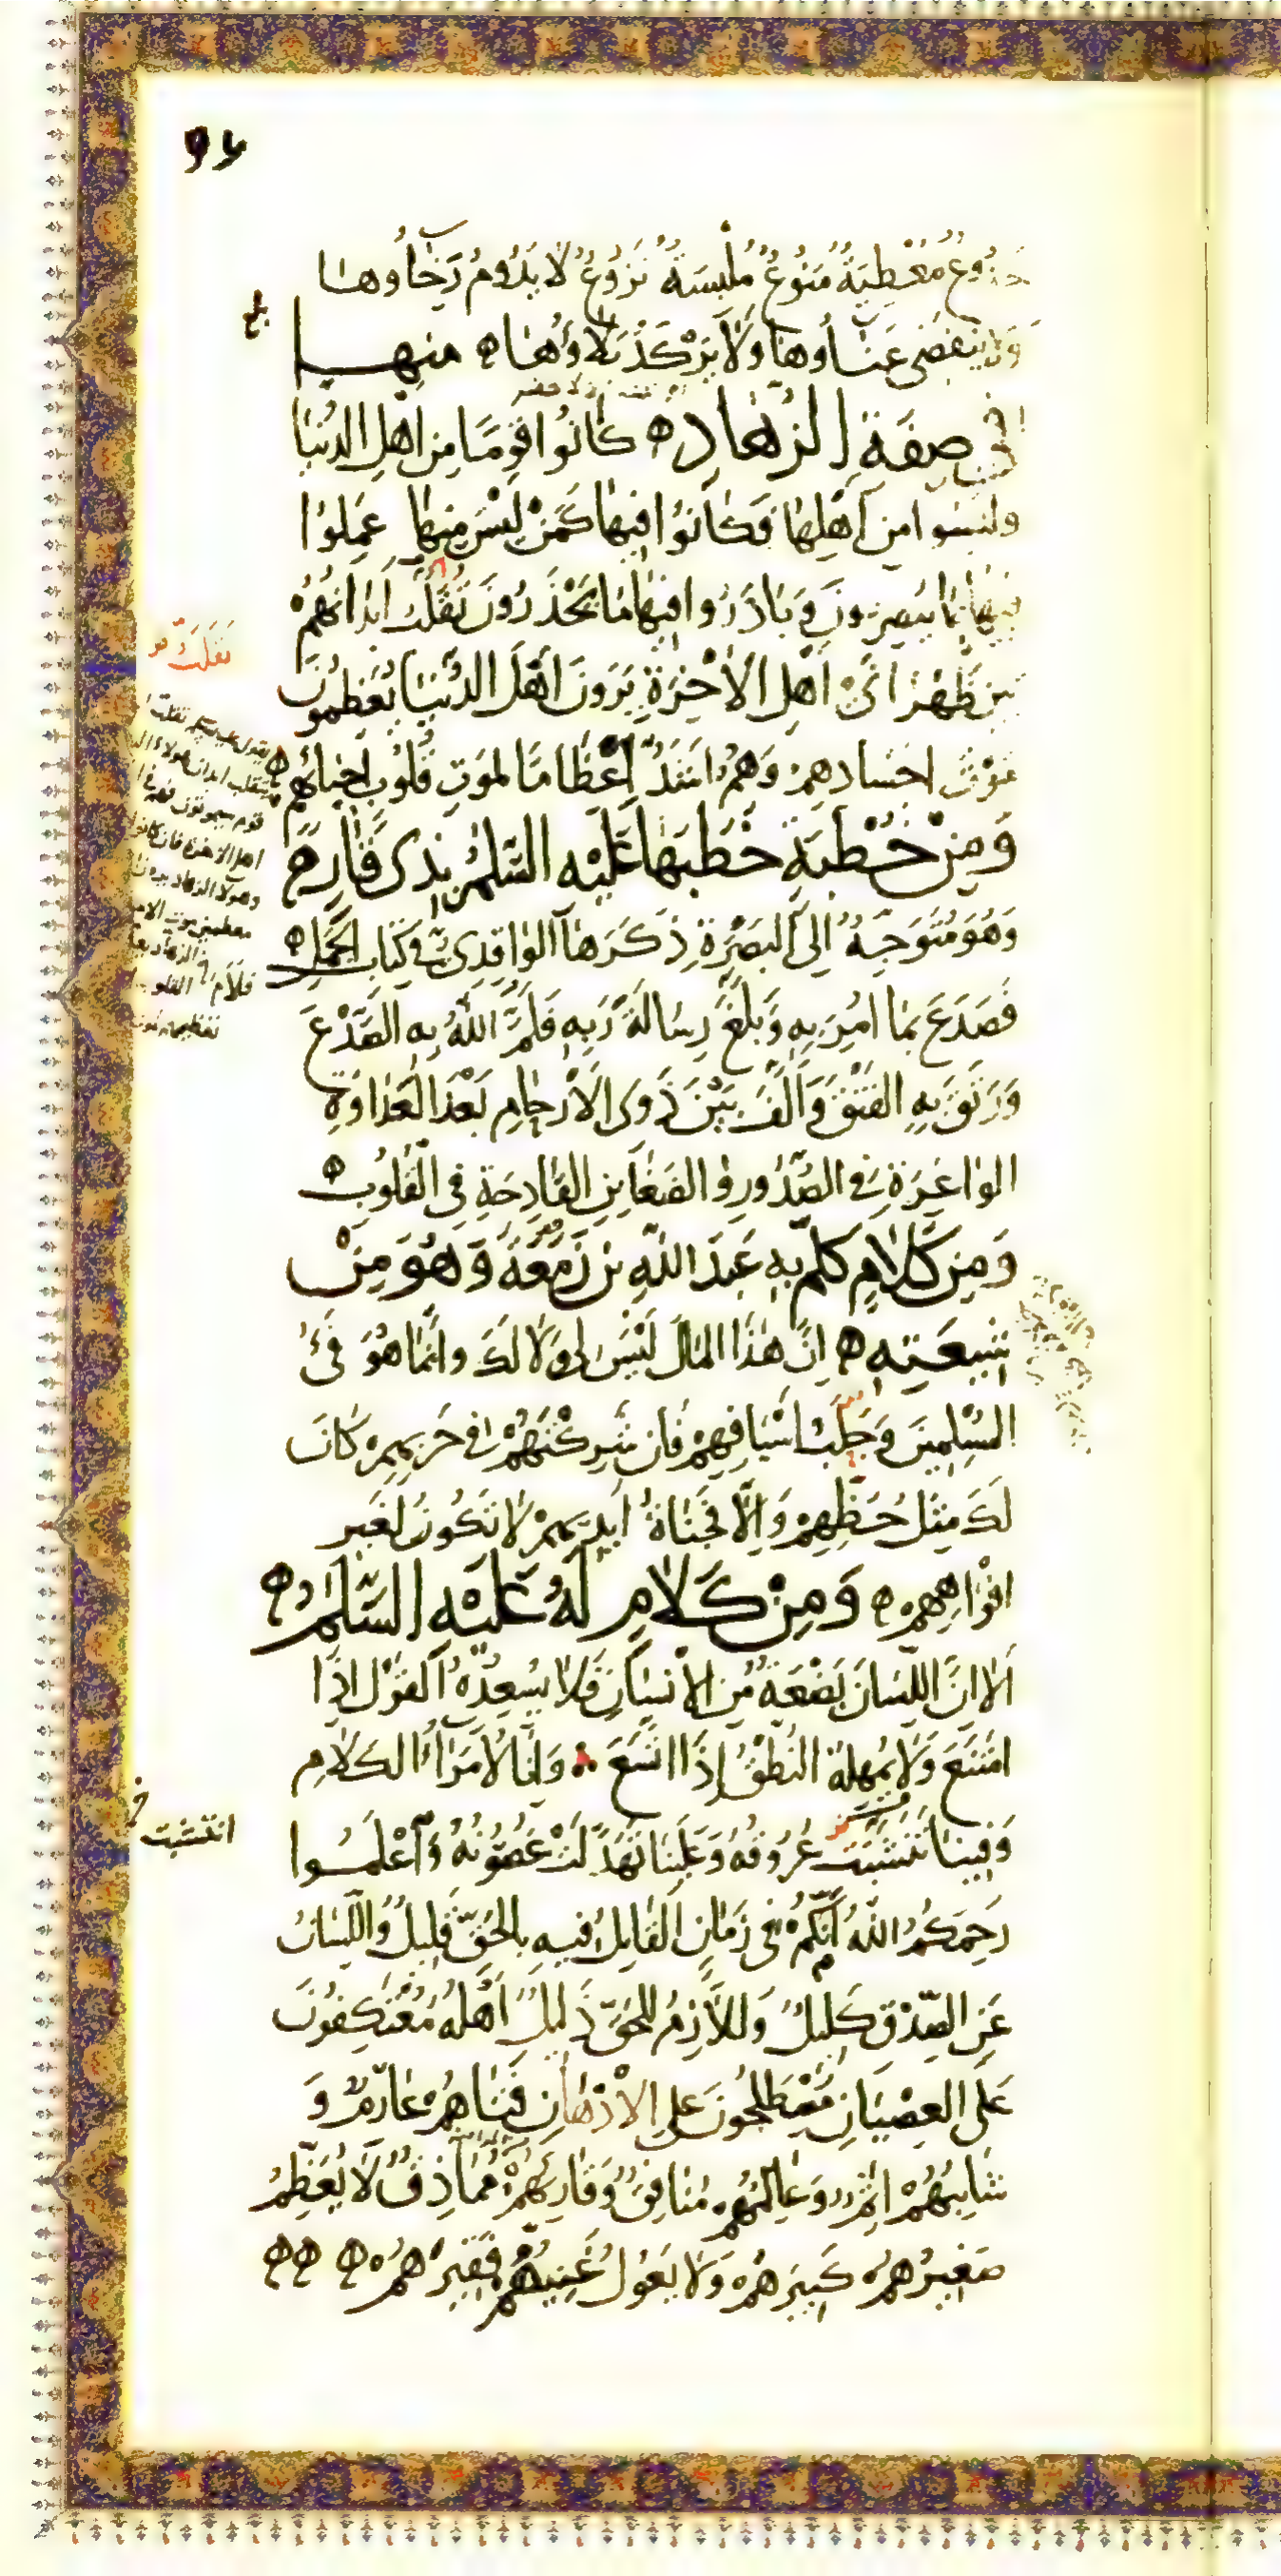 ٩٦
خَدُوعٌ مُعْطِيَةٌ مَنُوعٌ مُلْبِسَةٌ نَزُوعٌ لَا يَدُومُ رَخَاؤُهَا
وَلَا يَنْقَضِي عَنَاؤُهَا وَلَا يَرْكُدُ بَلَاؤُهَا ه مِنْهَا
بلغ
فِي صِفَةِ الزُّهَّادِ ه كَانُوا قَوْمًا مِنْ أَهْلِ الدُّنْيَا
وَلَيْسُوا مِنْ أَهْلِهَا فَكَانُوا فِيهَا كَمَنْ لَيْسَ مِنْهَا عَمِلُوا
فِيهَا بِمَا يُبْصِرُونَ وَبَادَرُوا فِيهَا مَا يَحْذَرُونَ تُقَلَّبُ أَبْدَانُهُمْ
بَيْنَ ظَهْرَانَيْ أَهْلِ الْآخِرَةِ يَرَوْنَ أَهْلَ الدُّنْيَا يُعَظِّمُونَ
مَوْتَ أَجْسَادِهِمْ وَهُمْ أَشَدُّ إِعْظَامًا لِمَوْتِ قُلُوبِ أَحْيَائِهِمْ ه
وَمِنْ خُطْبَةٍ خَطَبَهَا عَلَيْهِ السَّلَمُ بِذِي قَارٍ
وَهُوَ مُتَوَجِّهٌ إِلَى الْبَصْرَةِ ذَكَرَهَا الْوَاقِدِيُّ فِي كِتَابِ الْجَمَلِ ه
فَصَدَعَ بِمَا أُمِرَ بِهِ وَبَلَّغَ رِسَالَةَ رَبِّهِ فَلَمَّ اللَّهُ بِهِ الصَّدْعَ
وَرَتَقَ بِهِ الْفَتْقَ وَأَلَّفَ بَيْنَ ذَوِي الْأَرْحَامِ بَعْدَ الْعَدَاوَةِ
الْوَاغِرَةِ فِي الصُّدُورِ وَالضَّغَائِنِ الْقَادِحَةِ فِي الْقُلُوبِ ه
وَمِنْ كَلَامٍ كَلَّمَ بِهِ عَبْدَ اللَّهِ بْنَ زَمَعَةَ وَهُوَ مِنْ
شِيعَتِهِ ه إِنَّ هَذَا الْمَالَ لَيْسَ لِي وَلَا لَكَ وَإِنَّمَا هُوَ فَيْءُ
الْمُسْلِمِينَ وَجَلَبُ أَسْيَافِهِمْ فَإِنْ شَرِكْتَهُمْ فِي حَرْبِهِمْ كَانَ
لَكَ مِثْلُ حَظِّهِمْ وَإِلَّا فَجَنَاةُ أَيْدِيهِمْ لَا تَكُونُ لِغَيْرِ
أَفْوَاهِهِمْ ه وَمِنْ كَلَامٍ لَهُ عَلَيْهِ السَّلَمُ ه
أَلَا إِنَّ اللِّسَانَ بَضْعَةٌ مِنَ الْإِنْسَانِ فَلَا يُسْعِدُهُ الْقَوْلُ إِذَا
امْتَنَعَ وَلَا يُمْهِلُهُ النُّطْقُ إِذَا اتَّسَعَ وَإِنَّا لَأُمَرَاءُ الْكَلَامِ
وَفِينَا تَنَشَّبَتْ عُرُوقُهُ وَعَلَيْنَا تَهَدَّلَتْ غُصُونُهُ وَاعْلَمُوا
انتشبت خ
رَحِمَكُمُ اللَّهُ أَنَّكُمْ فِي زَمَانٍ الْقَائِلُ فِيهِ بِالْحَقِّ قَلِيلٌ وَاللِّسَانُ
عَنِ الصِّدْقِ كَلِيلٌ وَاللَّازِمُ لِلْحَقِّ ذَلِيلٌ أَهْلُهُ مُعْتَكِفُونَ
عَلَى الْعِصْيَانِ مُصْطَلِحُونَ عَلَى الْإِدْهَانِ فَتَاهُمْ عَارِمٌ وَ
شَائِبُهُمْ آثِمٌ وَعَالِمُهُمْ مُنَافِقٌ وَقَارِئُهُمْ مُمَاذِقٌ لَا يُعَظِّمُ
صَغِيرُهُمْ كَبِيرَهُمْ وَلَا يَعُولُ غَنِيُّهُمْ فَقِيرَهُمْ ه ه ه